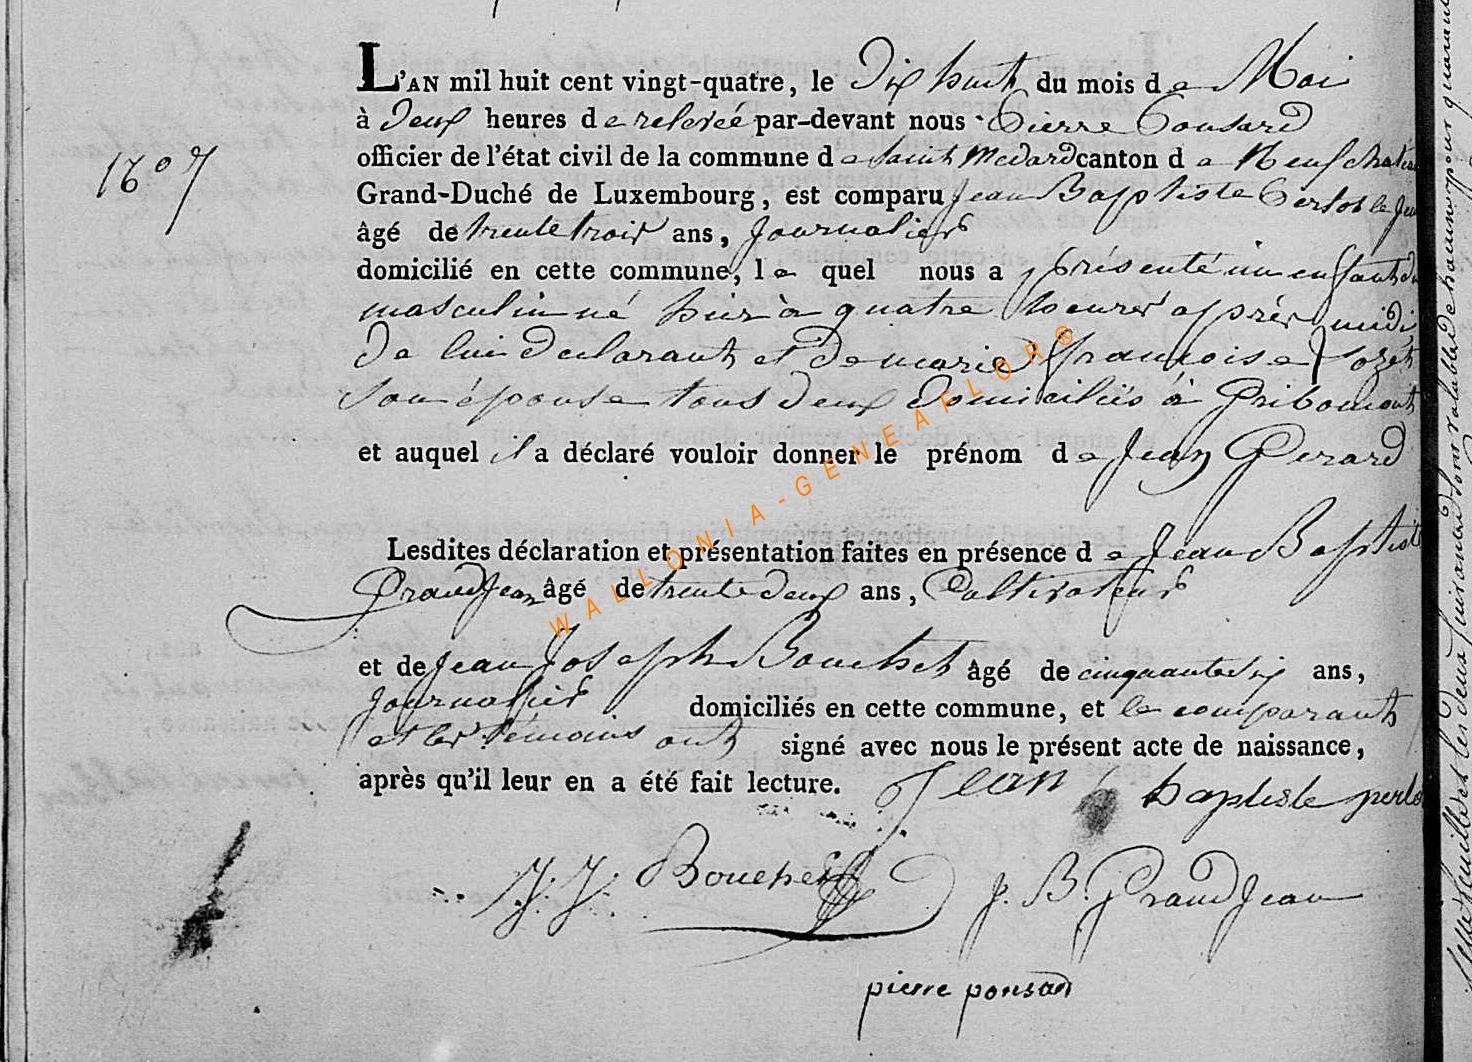 L'AN mil huit cent vingt-quatre, le Dix huit du mois de Mai
à Deux heures de relevée par-devant nous Pierre Ponsard
officier de l'état civil de la commune de Saint Medard canton de Neufchateau
Grand-Duché de Luxembourg, est comparu Jean Baptiste Perlot le
âgé de trente trois ans, Journalier
domicilié en cette commune, le quel nous a présenté un enfant du
masculin né hier à quatre heures après midi
De lui declarant et De marie françoise
Son épouse tous deux Domiciliés à Gribomont
et auquel il a déclaré vouloir donner le prénom de Jean Gerard
1707
Lesdites déclaration et présentation faites en présence de Jean Baptiste
GrandJean âgé de trente deux ans, Cultivateur
et de Jean Joseph Bouchet âgé de cinquante six ans,
Journalier domiciliés en cette commune, et le comparant
et les témoins ont signé avec nous le présent acte de naissance,
après qu'il leur en a été fait lecture. Jean baptiste perlo
J. J. Bouchet J. B. GrandJean
pierre ponsard
WALLONIA-GENEAFLOR®